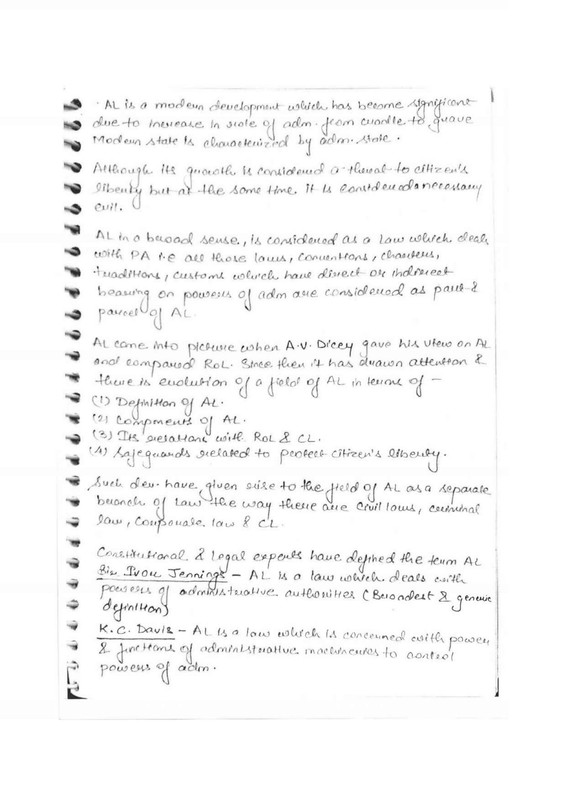 · AL is a modern development which has become significant
due to increase in role of adm. from cradle to grave
Modern state is characterized by adm. state.
Although its growth is considered a threat to citizen's
liberty but at the same time it is considered a necessary
evil.
AL in a broad sense, is considered as a law which deals
with PA i.e all those laws, conventions, charters,
traditions, customs which have direct or indirect
bearing on powers of adm are considered as part &
parcel of AL.
AL came into picture when A.V. Dicey gave his view on AL
and compared RoL. Since then it has drawn attention &
there is evolution of a field of AL in terms of -
(1) Definition of AL.
(2) Components of AL.
(3) Its relations with RoL & CL.
(4) Safeguards related to protect citizen's liberty.
Such dev. have given rise to the field of AL as a separate
branch of law the way there are civil laws, criminal
law, corporate law & CL.
Constitutional & legal experts have defined the term AL
Sir Ivor Jennings - AL is a law which deals with
powers of administrative authorities (Broadest & generic
definition)
K.C. Davis - AL is a law which is concerned with power
& functions of administrative machineries to control
powers of adm.